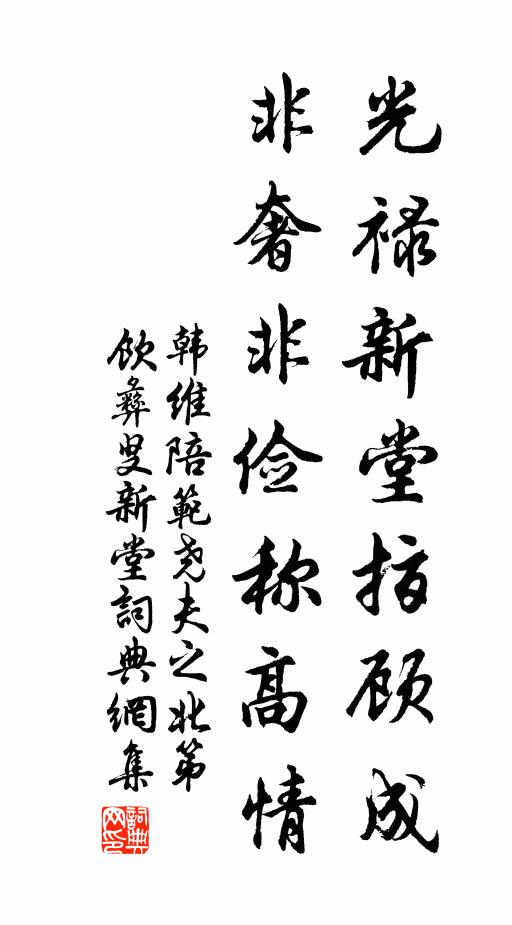 光禄新堂指顾成
非奢非俭称高情
韩维陪範尧夫之北第
饮彝叟新堂詞典網集
詞典
网印